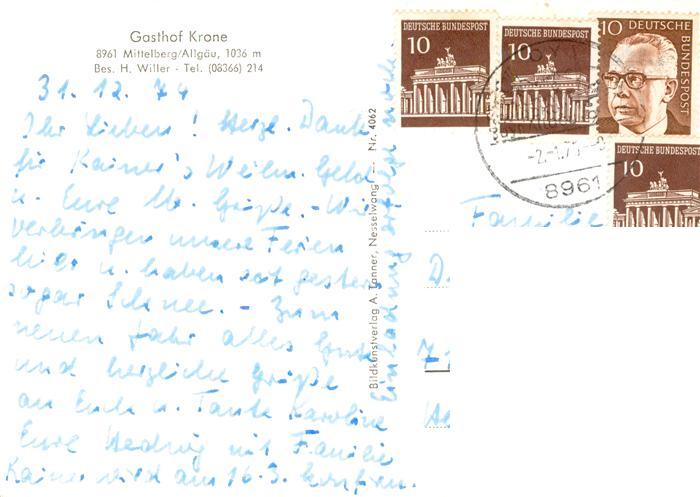 Gasthof Krone
8961 Mittelberg/Allgäu, 1036 m
Bes. H. Willer - Tel. (08366) 214
31. 12. 74
Ihr Lieben! Herzl. Dank
für Rainer's Weihn. Geld
u. Eure lb. Grüße. - Wir
verbringen unsere Ferien
hier u. haben seit gestern
sogar Schnee. - Zum
neuen Jahr alles Gute
und herzliche Grüße
an Euch u. Tante Karoline
Eure Hedwig mit Familie
Rainer wird am 16.3. konfirm.
Einladung erfolgt noch.
Bildkunstverlag A. Tanner, Nesselwang — Nr. 4062
DEUTSCHE BUNDESPOST
10
DEUTSCHE BUNDESPOST
10
10 DEUTSCHE
BUNDESPOST
DEUTSCHE BUNDESPOST
10
8961
Familie